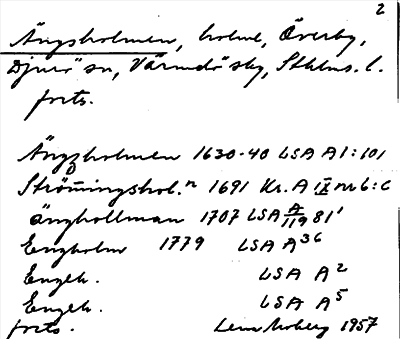 2
Ängsholmen, holme, Överby,
Djurö sn, Värmdö sbg, Sthlms. l.
forts.
Ängzholmen 1630-40 LSA A1:101
Strömingshol.n 1691 Kr. A IX nr 6:c
änghollman 1707 LSA A/119 81'
Engholm 1779 LSA A36
Engh. LSA A2
Engh. LSA A5
forts. 1957